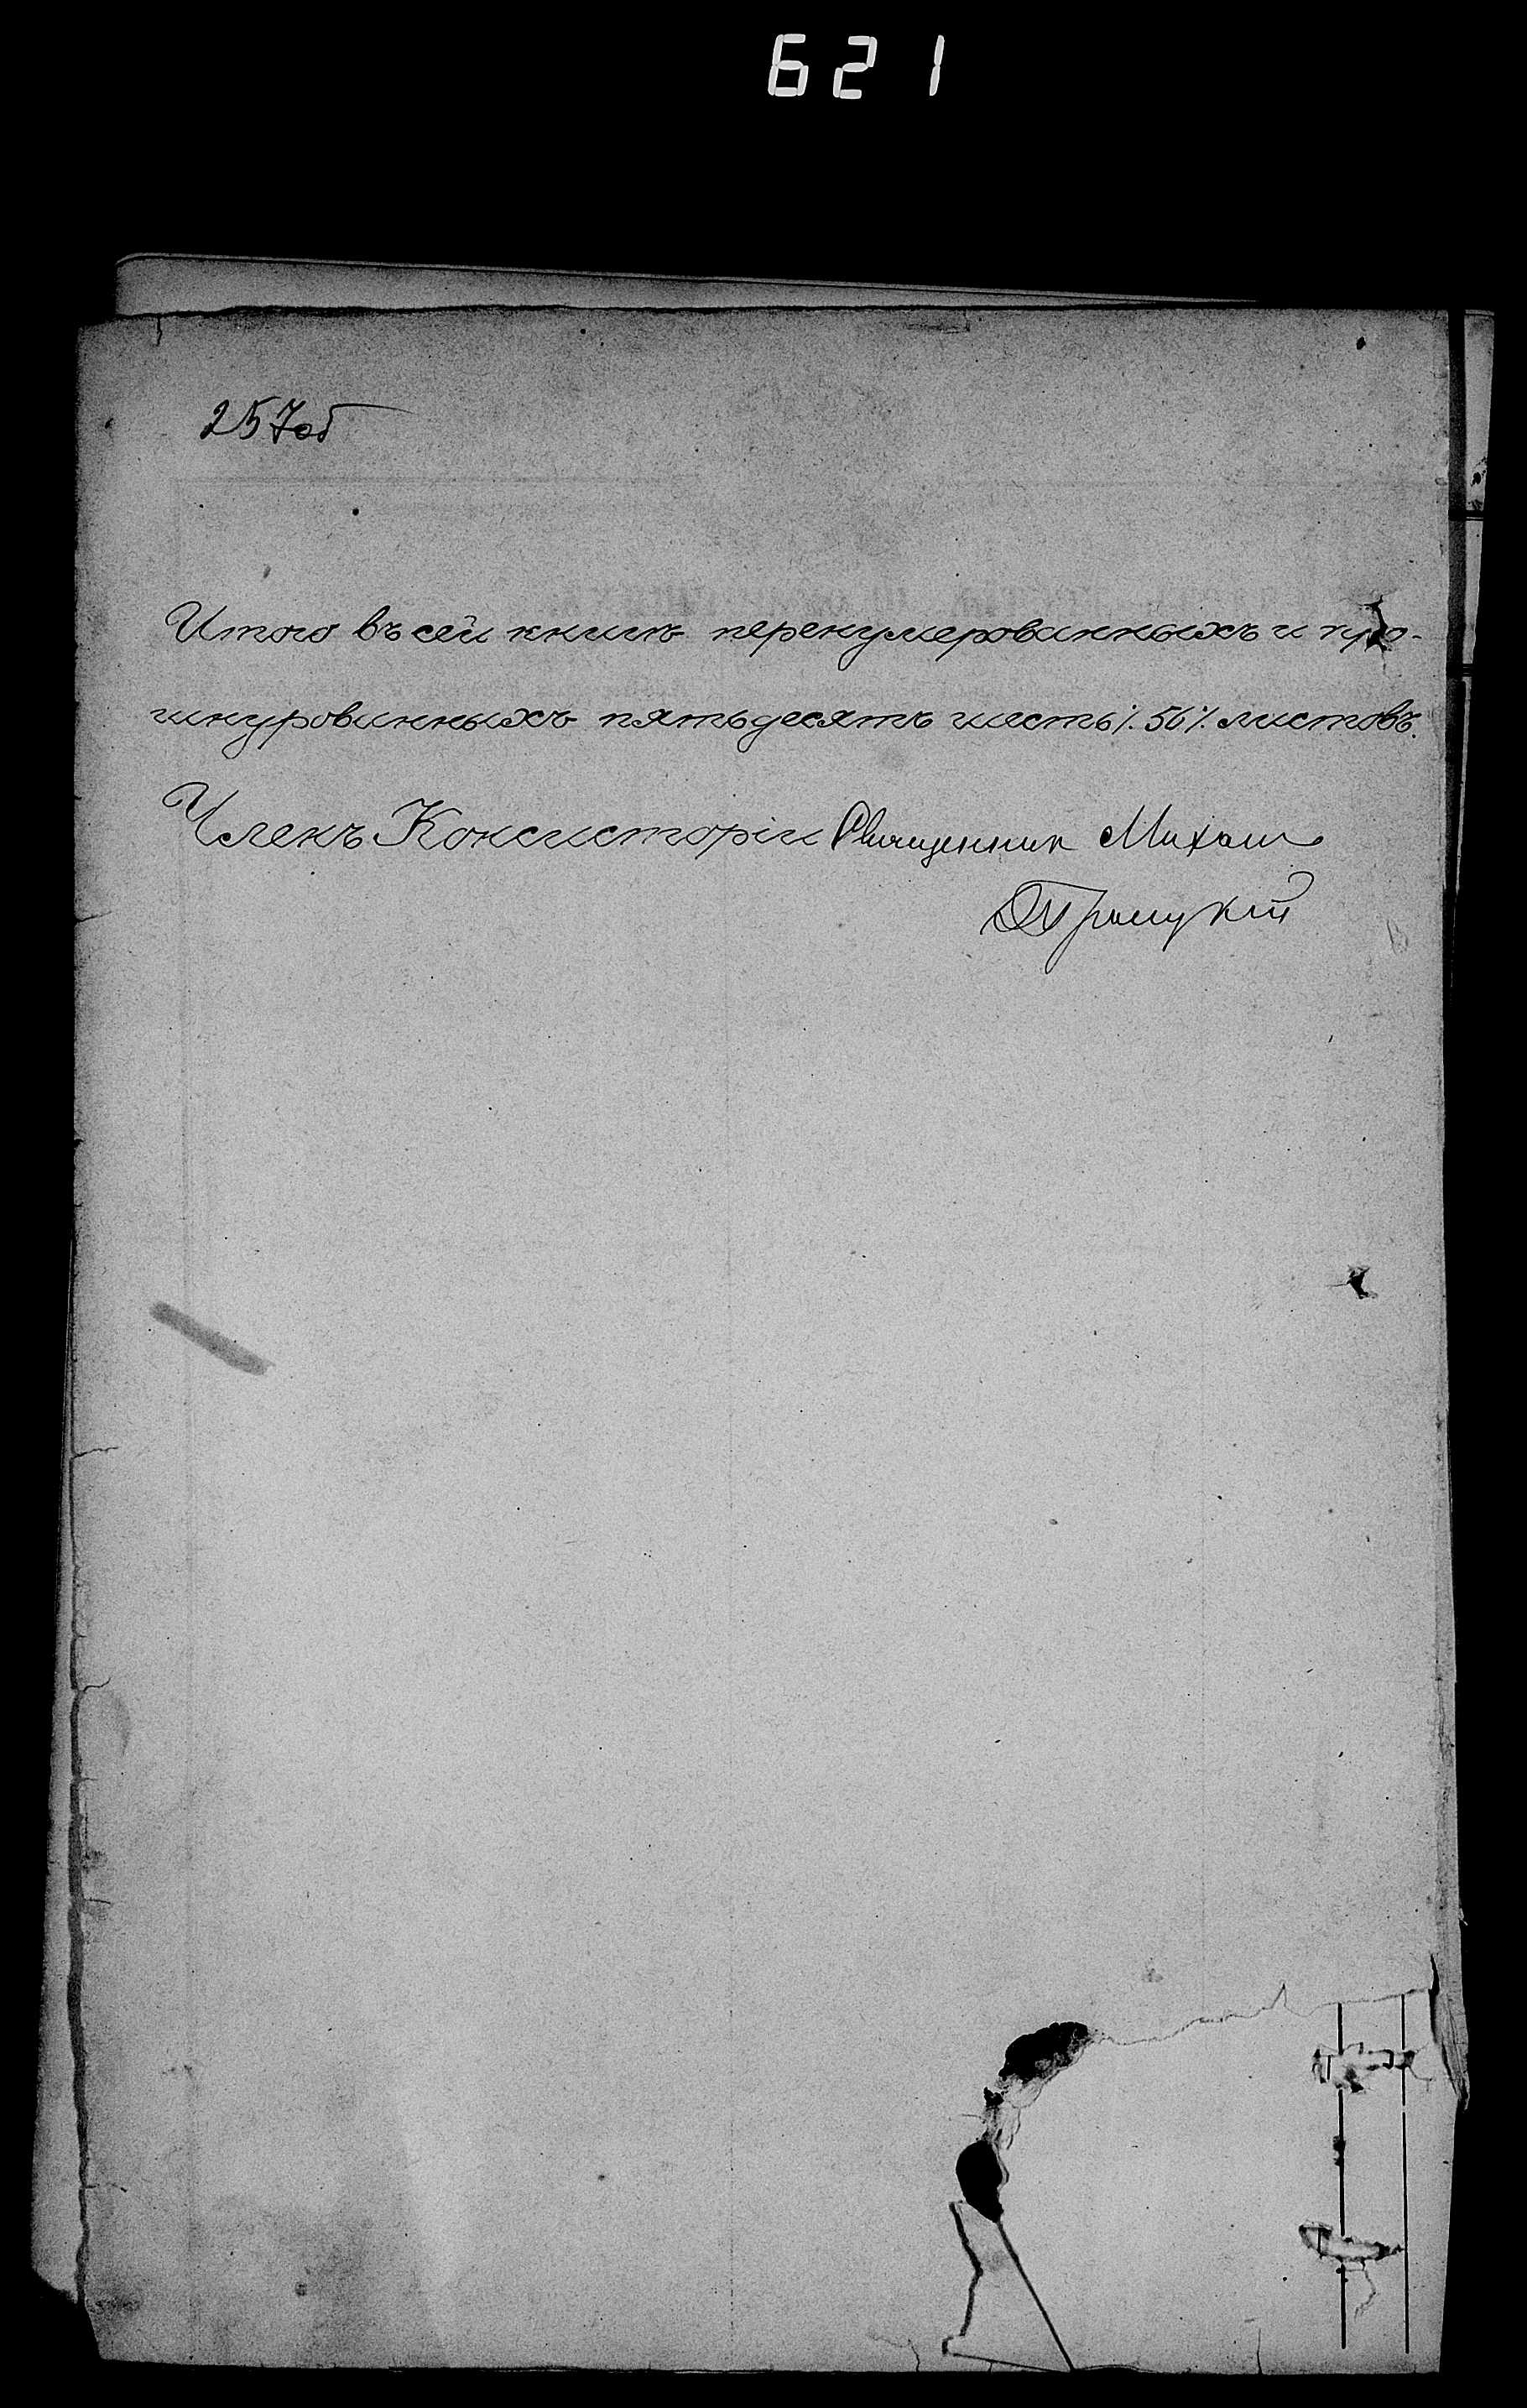 621
257об
Итого въ сей книгѣ перенумерованныхъ и про-
шнурованныхъ пятьдесятъ шесть ./. 56 ./. листовъ.
Членъ Консисторіи Священник Михаил